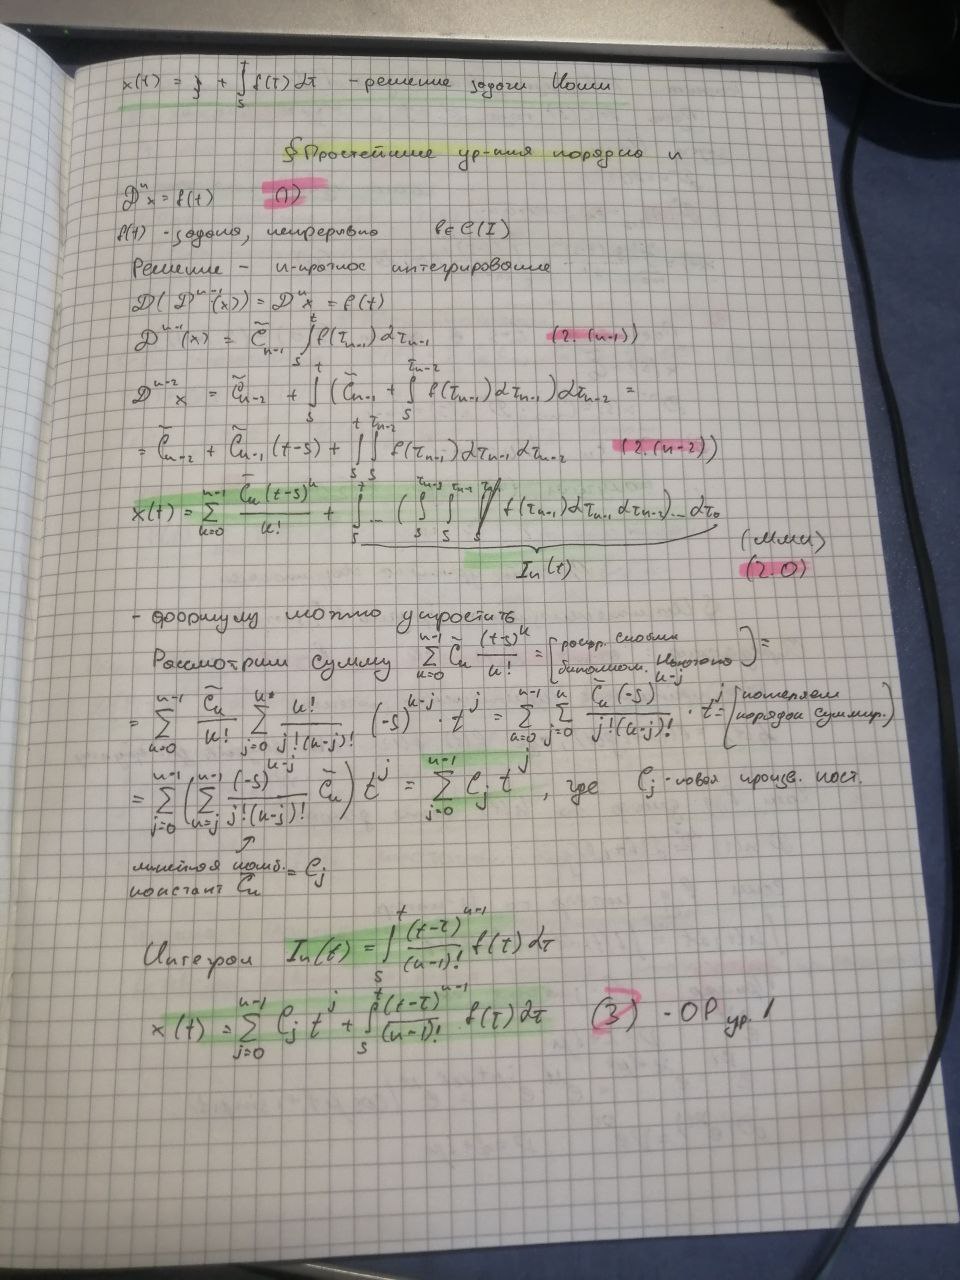 x(t) = ξ + ∫_s^t f(τ) dτ - решение задачи Коши
§ Простейшие ур-ния порядка n
D^n x = f(t) (1)
f(t) - задана, непрерывна f ∈ C(I)
Решение - n-кратное интегрирование
D(D^{n-1}(x)) = D^n x = f(t)
D^{n-1}(x) = C̃_{n-1} ∫_s^t f(τ_{n-1}) dτ_{n-1} (2.(n-1))
D^{n-2} x = C̃_{n-2} + ∫_s^t (C̃_{n-1} + ∫_s^{τ_{n-2}} f(τ_{n-1}) dτ_{n-1}) dτ_{n-2} =
= C̃_{n-2} + C̃_{n-1} (t-s) + ∫_s^t ∫_s^{τ_{n-2}} f(τ_{n-1}) dτ_{n-1} dτ_{n-2} (2.(n-2))
x(t) = ∑_{k=0}^{n-1} C̃_k (t-s)^k / k! + ∫_s^t ... (∫_s^{τ_{n-3}} ∫_s f(τ_{n-1}) dτ_{n-1} dτ_{n-2}) ... dτ_0
I_n(t) (ММИ)
(2.0)
- формулу можно упростить
Рассмотрим сумму ∑_{k=0}^{n-1} C̃_k (t-s)^k / k! = [раскр. скобки биномом Ньютона] =
= ∑_{k=0}^{n-1} C̃_k / k! ∑_{j=0}^{k} k! / j!(k-j)! (-s)^{k-j} · t^j = ∑_{k=0}^{n-1} ∑_{j=0}^{k} C̃_k (-s)^{k-j} / j!(k-j)! · t^j = [поменяем порядок суммир.]
= ∑_{j=0}^{n-1} (∑_{k=j}^{n-1} (-s)^{k-j} / j!(k-j)! C̃_k) t^j = ∑_{j=0}^{n-1} C_j t^j, где C_j - новая произв. конст.
линейная комб. констант C̃_k = C_j
Интеграл I_n(t) = ∫_s^t (t-τ)^{n-1} / (n-1)! f(τ) dτ
x(t) = ∑_{j=0}^{n-1} C_j t^j + ∫_s^t (t-τ)^{n-1} / (n-1)! f(τ) dτ (3) - ОР ур. 1